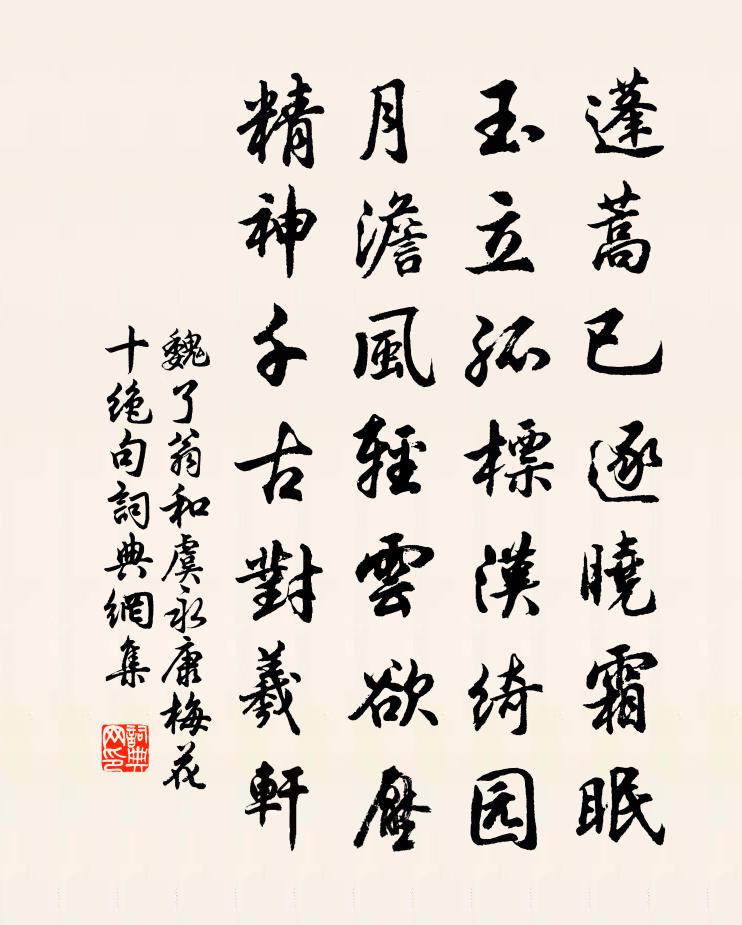 蓬蒿已逐曉霜眠
玉立孤標漢綺园
月澹風輕雲欲壓
精神千古對羲軒
魏了翁和虞永康梅花
十絶句詞典網集
詞典
网印